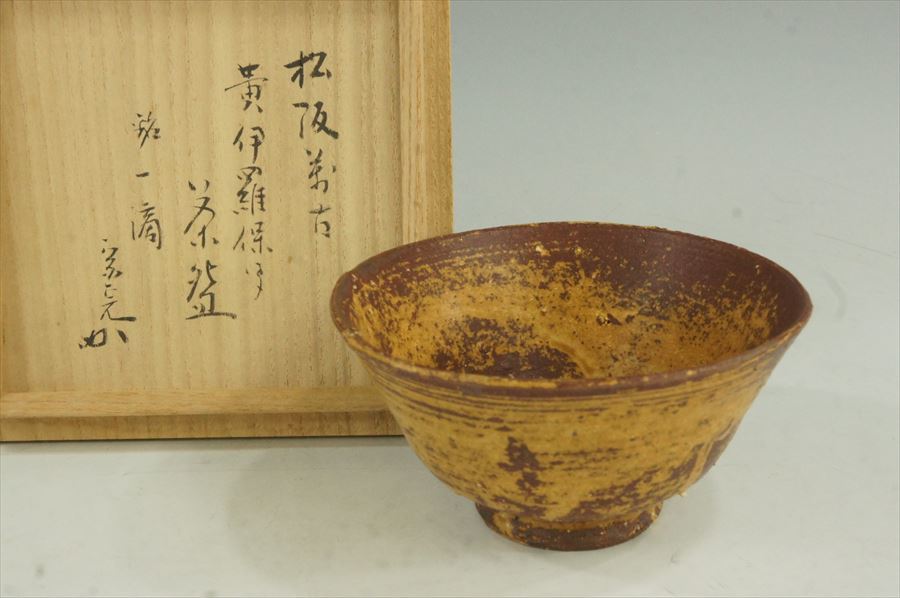 松阪萬古
黄伊羅保手
茶盌
銘一滴